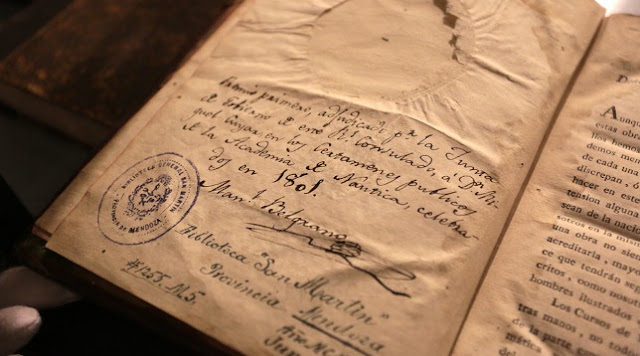 Premio primero, adjudicado pr la Junta
de Gobierno de este Rl Consulado, a Dn Mi-
guel Cuyar, en los Certamenes publicos
de la Academia de Nautica, celebra-
dos en 1801.
Manl Belgrano
BIBLIOTECA GENERAL SAN MARTIN
MENDOZA
Biblioteca "San Martin"
Provincia Mendoza
Aunque
estas obra
los hom
demos
de cada una
discrepan,
hacer en este
tension algun
sean de la nació
sotros en la mism
una obra no sie
acreditaria, may
ce que tendrán se
critos, como noso
hombres ilustrados
Los Cursos de
tras manos, no tod
de la parte
mática